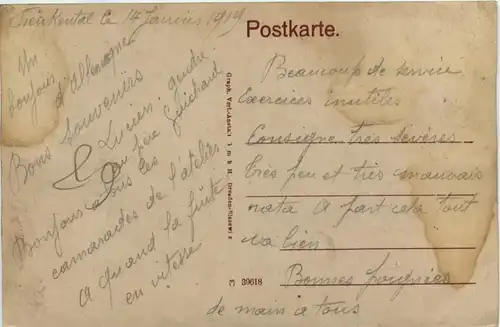 le 14 Janvier 1919
Postkarte.
Un
bonjour
d'Allemagne
Bons Souvenirs
Lucien, gendre
au père Guichard
Bonjour à tous les
camarades de l'atelier
A quand la fuite
en vitesse
Beaucoup de service
Exercices inutiles
Consigne très sévères
très peu et très mauvais
rata A part cela tout
va bien
Bonnes poignées
de main à tous
Graph. Verl.-Anstalt G m b H, Dresden
39618